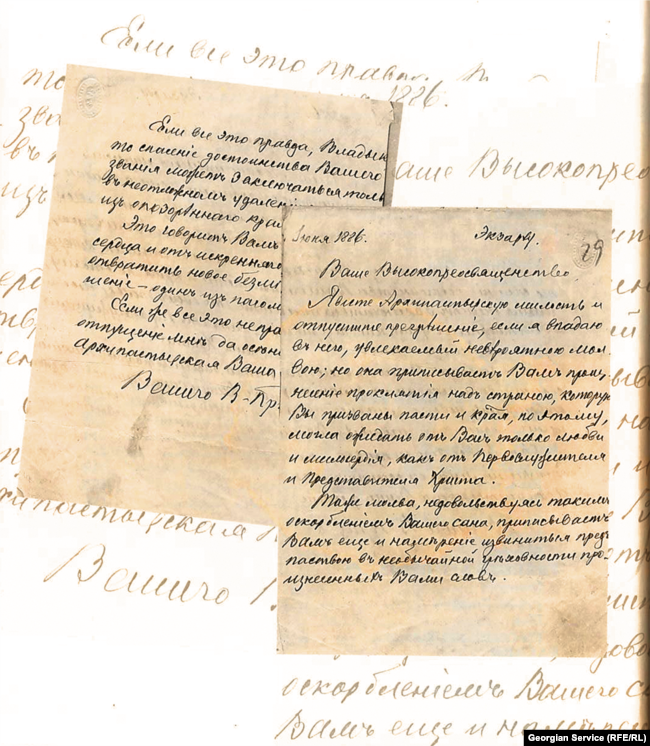 Если все это правда
1886.
Если все это правда, Владык
то спасеніе достоинства Вашего
званія можетъ заключаться толь
въ неотложномъ удалені
изъ опозореннаго края
Это говоритъ Вамъ
сердца и отъ искренняго
отвратить новое безмѣ
шеніе — одинъ изъ пасом
Если же все это непра
отпущеніе мнѣ да осѣни
архипастырская Ваша
Вашего В-Пр.
Іюня 1886.
Экзарху.
29
Ваше Высокопреосвященство,
Явите Архипастырскую милость и
отпустите прегрѣшеніе, если я впадаю
въ него, увлекаемый невѣроятною мол
вою; но она приписываетъ Вамъ произ
несеніе проклятія надъ страною, которую
Вы призваны пасти и края, поэтому,
могла ожидать отъ Васъ только любви
и милосердія, какъ отъ Первослужителя
и Представителя Христа.
Таже молва, недовольствуясь такимъ
оскорбленіемъ Вашего сана, приписываетъ
Вамъ еще и намѣреніе извиниться предъ
паствою въ необычайной грѣховности про-
изнесенныхъ Вами словъ.
аше Высокопрео
Вашего
оскорбленіемъ Вашего са
Вамъ еще и намѣрен
Georgian Service (RFE/RL)